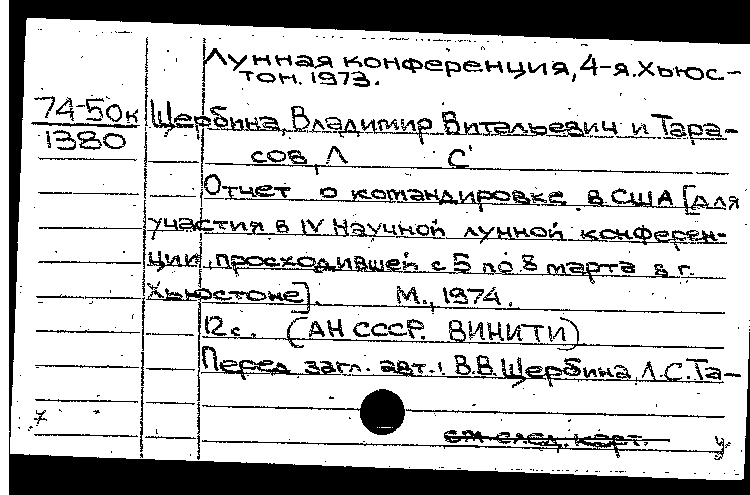 Лунная конференция, 4-я. Хьюс-
тон. 1973.
74-50к
1380
Щербина, Владимир Витальевич и Тара-
сов, Л С
Отчет о командировке в США [для
участия в IV Научной лунной конферен-
ции, просходившей с 5 по 8 марта в г.
Хьюстоне]. М., 1974.
12 с. (АН СССР. ВИНИТИ)
Перед загл. авт.: В.В. Щербина, Л.С. Та-
см след. карт.